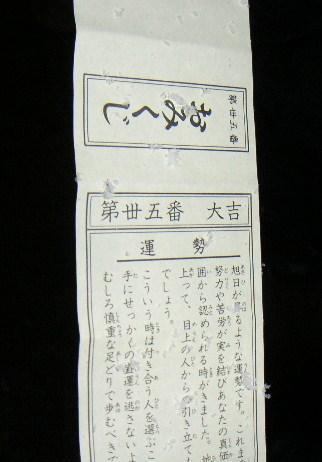 第卅五番
おみくじ
第卅五番 大吉
運勢
旭日が昇るような運勢です。これま
努力や苦労が実を結びあなたの真価
囲から認められる時がきました。地
上つて、目上の人から引き立て
でしよう。
こういう時は付き合う人を選ぶこ
手にせっかくの盛運を逃さないよ
むしろ慎重な足どりで歩むべきで